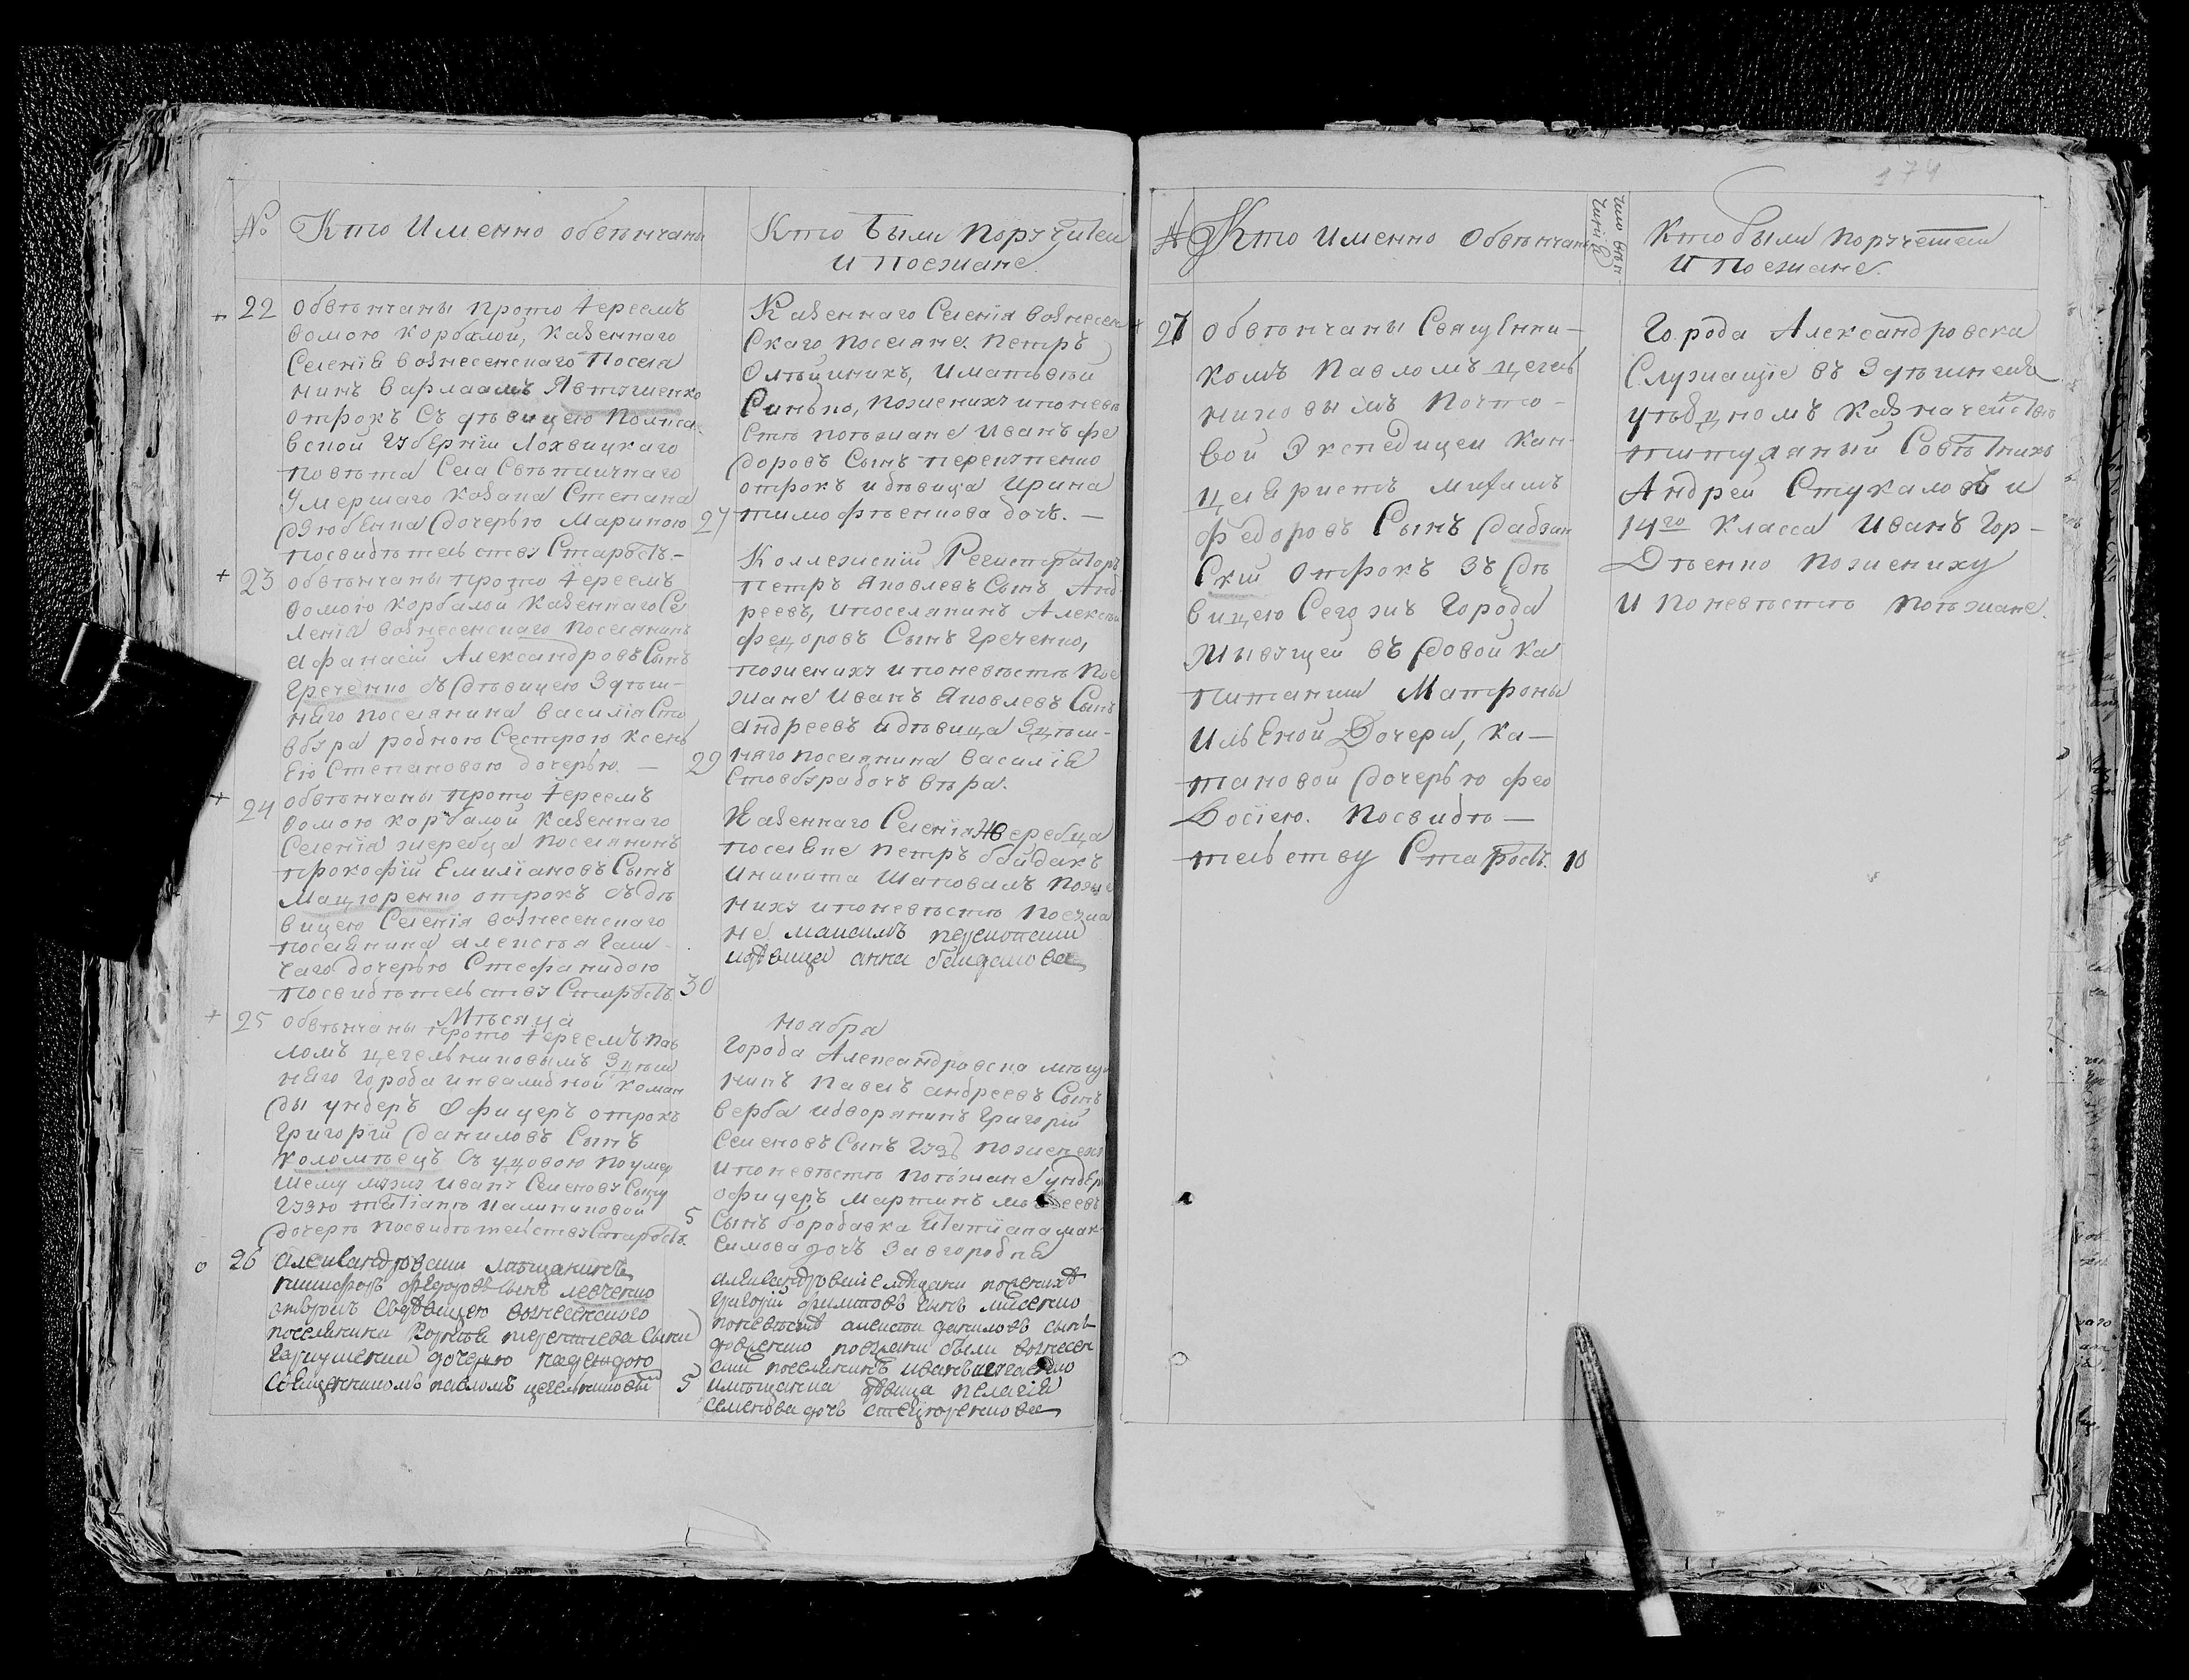 174
№ Кто Именно обвѣнчаны
Кто были поручители
и Поезжане.
22 Обвѣнчаны прото іереемъ
Ѳомою Корбалой, Казеннаго
Селенія Вознесенскаго Поселя
нинъ Варлаамъ Явтушенко
отрокъ Съ дѣвицею Полта
вской Губерніи Лохвицкаго
повѣта Села
Умершаго Козака Степана
дочерью Мариною 27
посвидѣтельству Старостъ.
Казеннаго Селенія Вознесен
скаго поселяне Петръ
Олѣйникъ, и Матвѣй
пожениху и по невѣ
стѣ поѣзжане Иванъ Фе
доровъ Сынъ
отрокъ и дѣвица Ирина
Тимофѣенкова дочь.
23 обвѣнчаны прото іереемъ
Ѳомою Корбалой Казеннаго Се
ленія Вознесенскаго поселянинъ
Афанасій Александровъ Сынъ
Греченко съ дѣвицею Здѣш-
няго поселянина Василія Сто
вбура родною Сестрою Ксень
ею Степановою дочерью. 29
Коллежскій Регистраторъ
Петръ Яковлевъ Сынъ Анд
реевъ, и поселянинъ Алексѣй
Федоровъ Сынъ Греченко,
пожениху и по невѣстѣ пое
зжане Иванъ Яковлевъ Сынъ
Андреевъ и дѣвица Здѣш-
няго поселянина Василія
Стовбура дочь Вѣра.
24 обвѣнчаны прото іереемъ
Ѳомою Корбалой Казеннаго
Селенія Жеребца поселянинъ
Прокофій Емиліановъ Сынъ
Мащоренко отрокъ съ дѣ
вицею Селенія Вознесенскаго
поселянина Алексѣя
дочерью Стефанидою
посвидѣтельству Старостъ. 30
Казеннаго Селенія Жеребца
поселяне Петръ Бойдакъ
и Никита Шаповалъ пожe
ниху и по невѣстѣ поезжа
не Максимъ
и дѣвица Анна
Мѣсяца Ноября
25 обвѣнчаны прото іереемъ Пав
ломъ Цегельниковымъ Здѣш
няго Города инвалидной коман
ды ундеръ Офицеръ отрокъ
Григорій Даниловъ Сынъ
Коломѣецъ Съ удовою по умер
шему мужу Иванъ Семеновъ Сыну
Гузю Татіаною Калиниковой
дочерѣ посвидѣтельству Старостъ. 5
Города Александровска мѣща
нинъ Павелъ Андреевъ Сынъ
Верба и дворянинъ Григорій
Семеновъ Сынъ Гузь пожениху
и по невѣстѣ поѣзжане ундеръ
офицеръ Мартинъ
Сынъ Бородавка и Татіана Мак
симова дочь Завгородня
26 Александровский мѣщанинъ
Никифоръ Федоровъ сынъ Левченко
отрокъ съ дѣвицею вознесенского
поселянина Корнѣя
дочерью
священникомъ павломъ цегельниковым 5
александровские мещани по жениху
Григорій Филиповъ сынъ
по невѣстѣ алексѣй даниловъ сынъ
поезжани были вознесен
ский поселянинъ иванъ
и мѣщанка дѣвица пелагія
семенова дочь
№ Кто Именно Обвѣнчаны
Число вѣн-
чанія
Кто были Поручетели
и Поезжане.
27 обвѣнчаны Священни-
комъ Павломъ Цегель
никовымъ почто-
вой Экспедиціи Кан-
целяристъ
Федоровъ Сынъ
отрокъ Зъ дѣ
вицею Сегожъ Города
Живущей въ довой Ка
питанши Матроны
Ильеной Дочери, Ка-
тановой дочерью Фео
досіею. Посвидѣ-
тельству Старостъ. 10
Города Александровска
Служащіе въ Здѣшнемъ
уѣздномъ казначействѣ
титулярный Совѣтникъ
Андрей Стукаловъ и
14го Класса Иванъ Гор-
дѣенко пожениху
и по невѣстѣ поѣзжане.